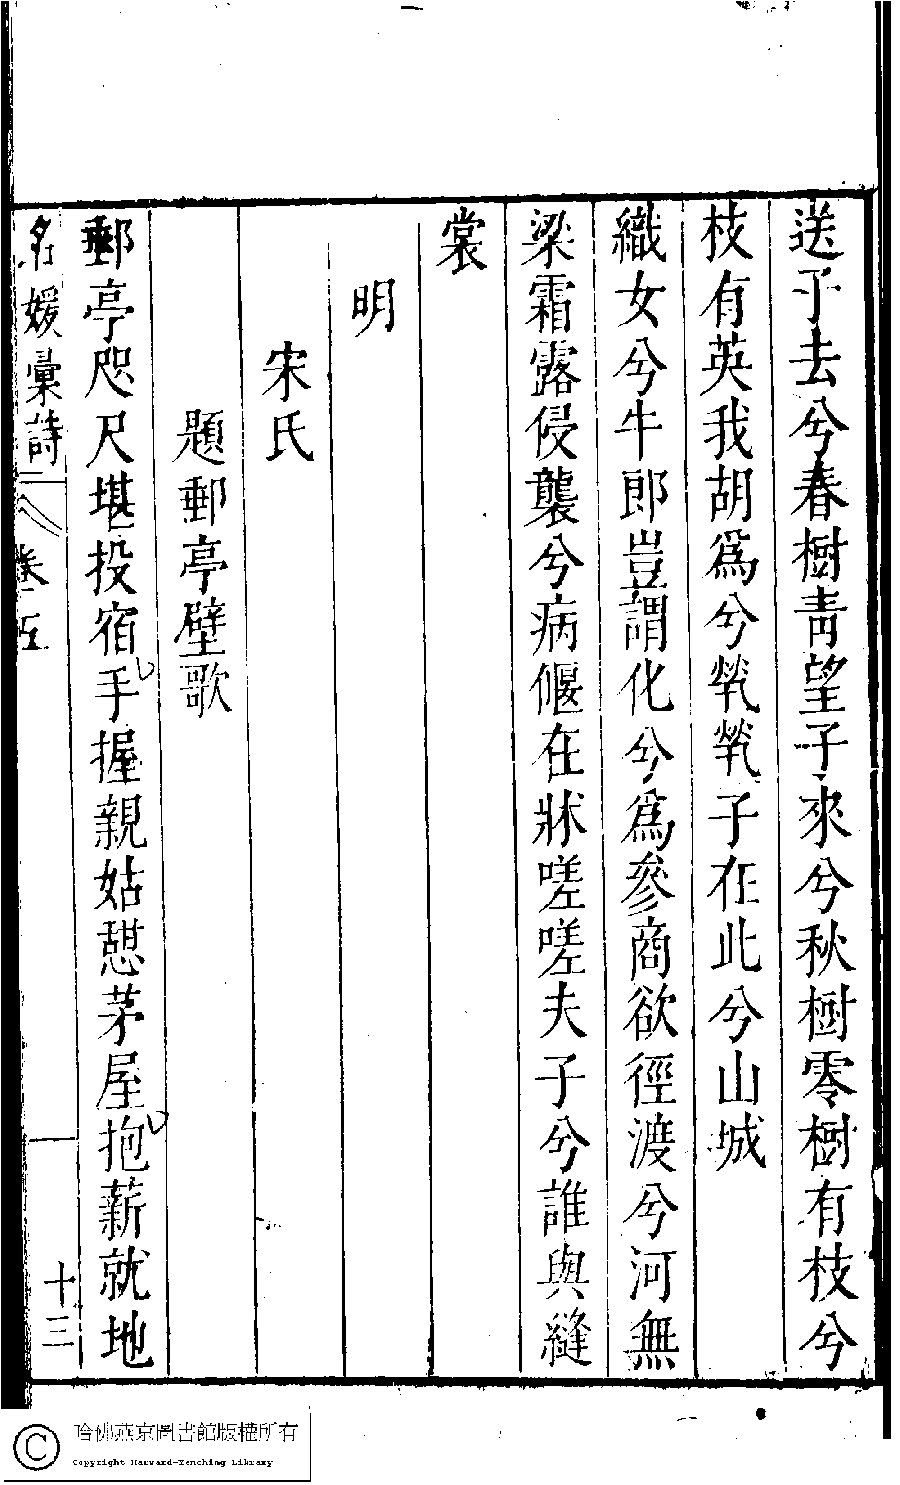 送子去兮春樹靑望子來兮秋樹零樹有枝兮
枝有英我胡爲兮煢煢子在此兮山城
織女兮牛郎豈謂化兮爲參商欲徑渡兮河無
梁霜露侵襲兮病偃在牀嗟嗟夫子兮誰與縫
裳
明
宋氏
題郵亭壁歌
郵亭咫尺堪投宿手握親姑憩茅屋抱薪就地
名媛彙詩 卷五 十三
哈佛燕京圖書館版權所有
Copyright Harvard-Yenching Library